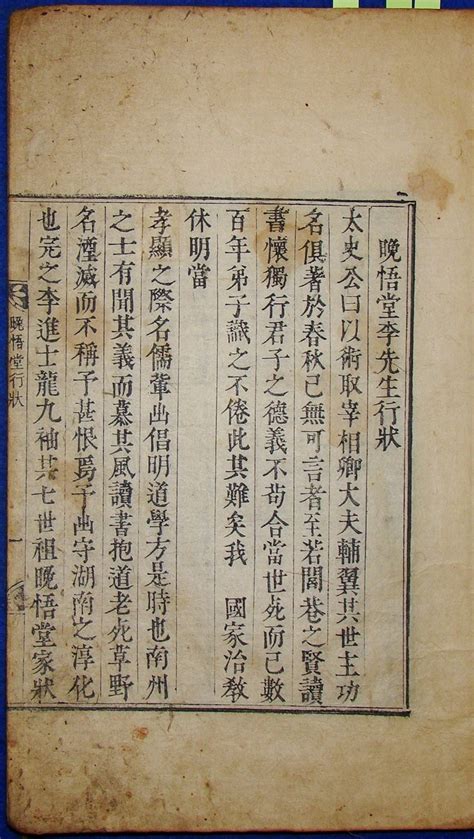 晚悟堂李先生行狀
太史公曰以術取宰相卿大夫輔翼其世主功
名俱著於春秋已無可言者至若閭巷之賢讀
書懷獨行君子之德義不苟合當世死而已數
百年弟子識之不倦此其難矣我　國家治敎
休明當
孝顯之際名儒軰出倡明道學方是時也南州
之士有聞其義而慕其風讀書抱道老死草野
名湮滅而不稱予甚恨焉予出守湖南之淳化
也完之李進士龍九袖其七世祖晚悟堂家狀
晚悟堂行狀　一